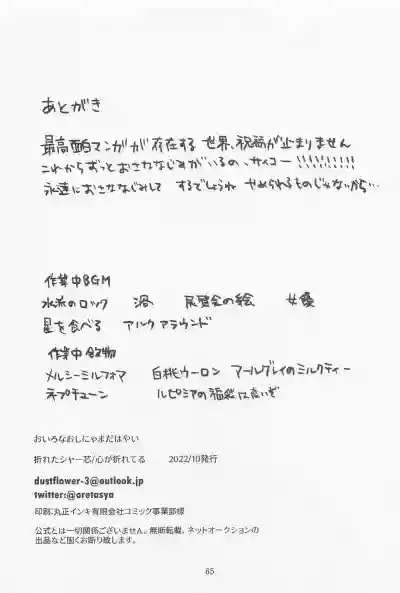 あとがき
最高面白マンガが存在する世界、祝福が止まりません
これからずっとおさななじみがいるの、サイコー!!!!!!!!!!
永遠におさななじみして するでしょうね やめられるものじゃないから…
作業中BGM
水流のロック 渦 展覧会の絵 女優
星を食べる アルクアラウンド
作業中飲物
メルシーミルフォマ 白桃ウーロン アールグレイのミルクティー
ネプチューン ルピシアの福袋は良いぞ
おいろなおしにゃまだはやい
折れたシャー芯/心が折れてる 2022/10発行
dustflower-3@outlook.jp
twitter:@oretasya
印刷:丸正インキ有限会社コミック事業部様
公式とは一切関係ございません。無断転載、ネットオークションの
出品など固くお断り致します。
65